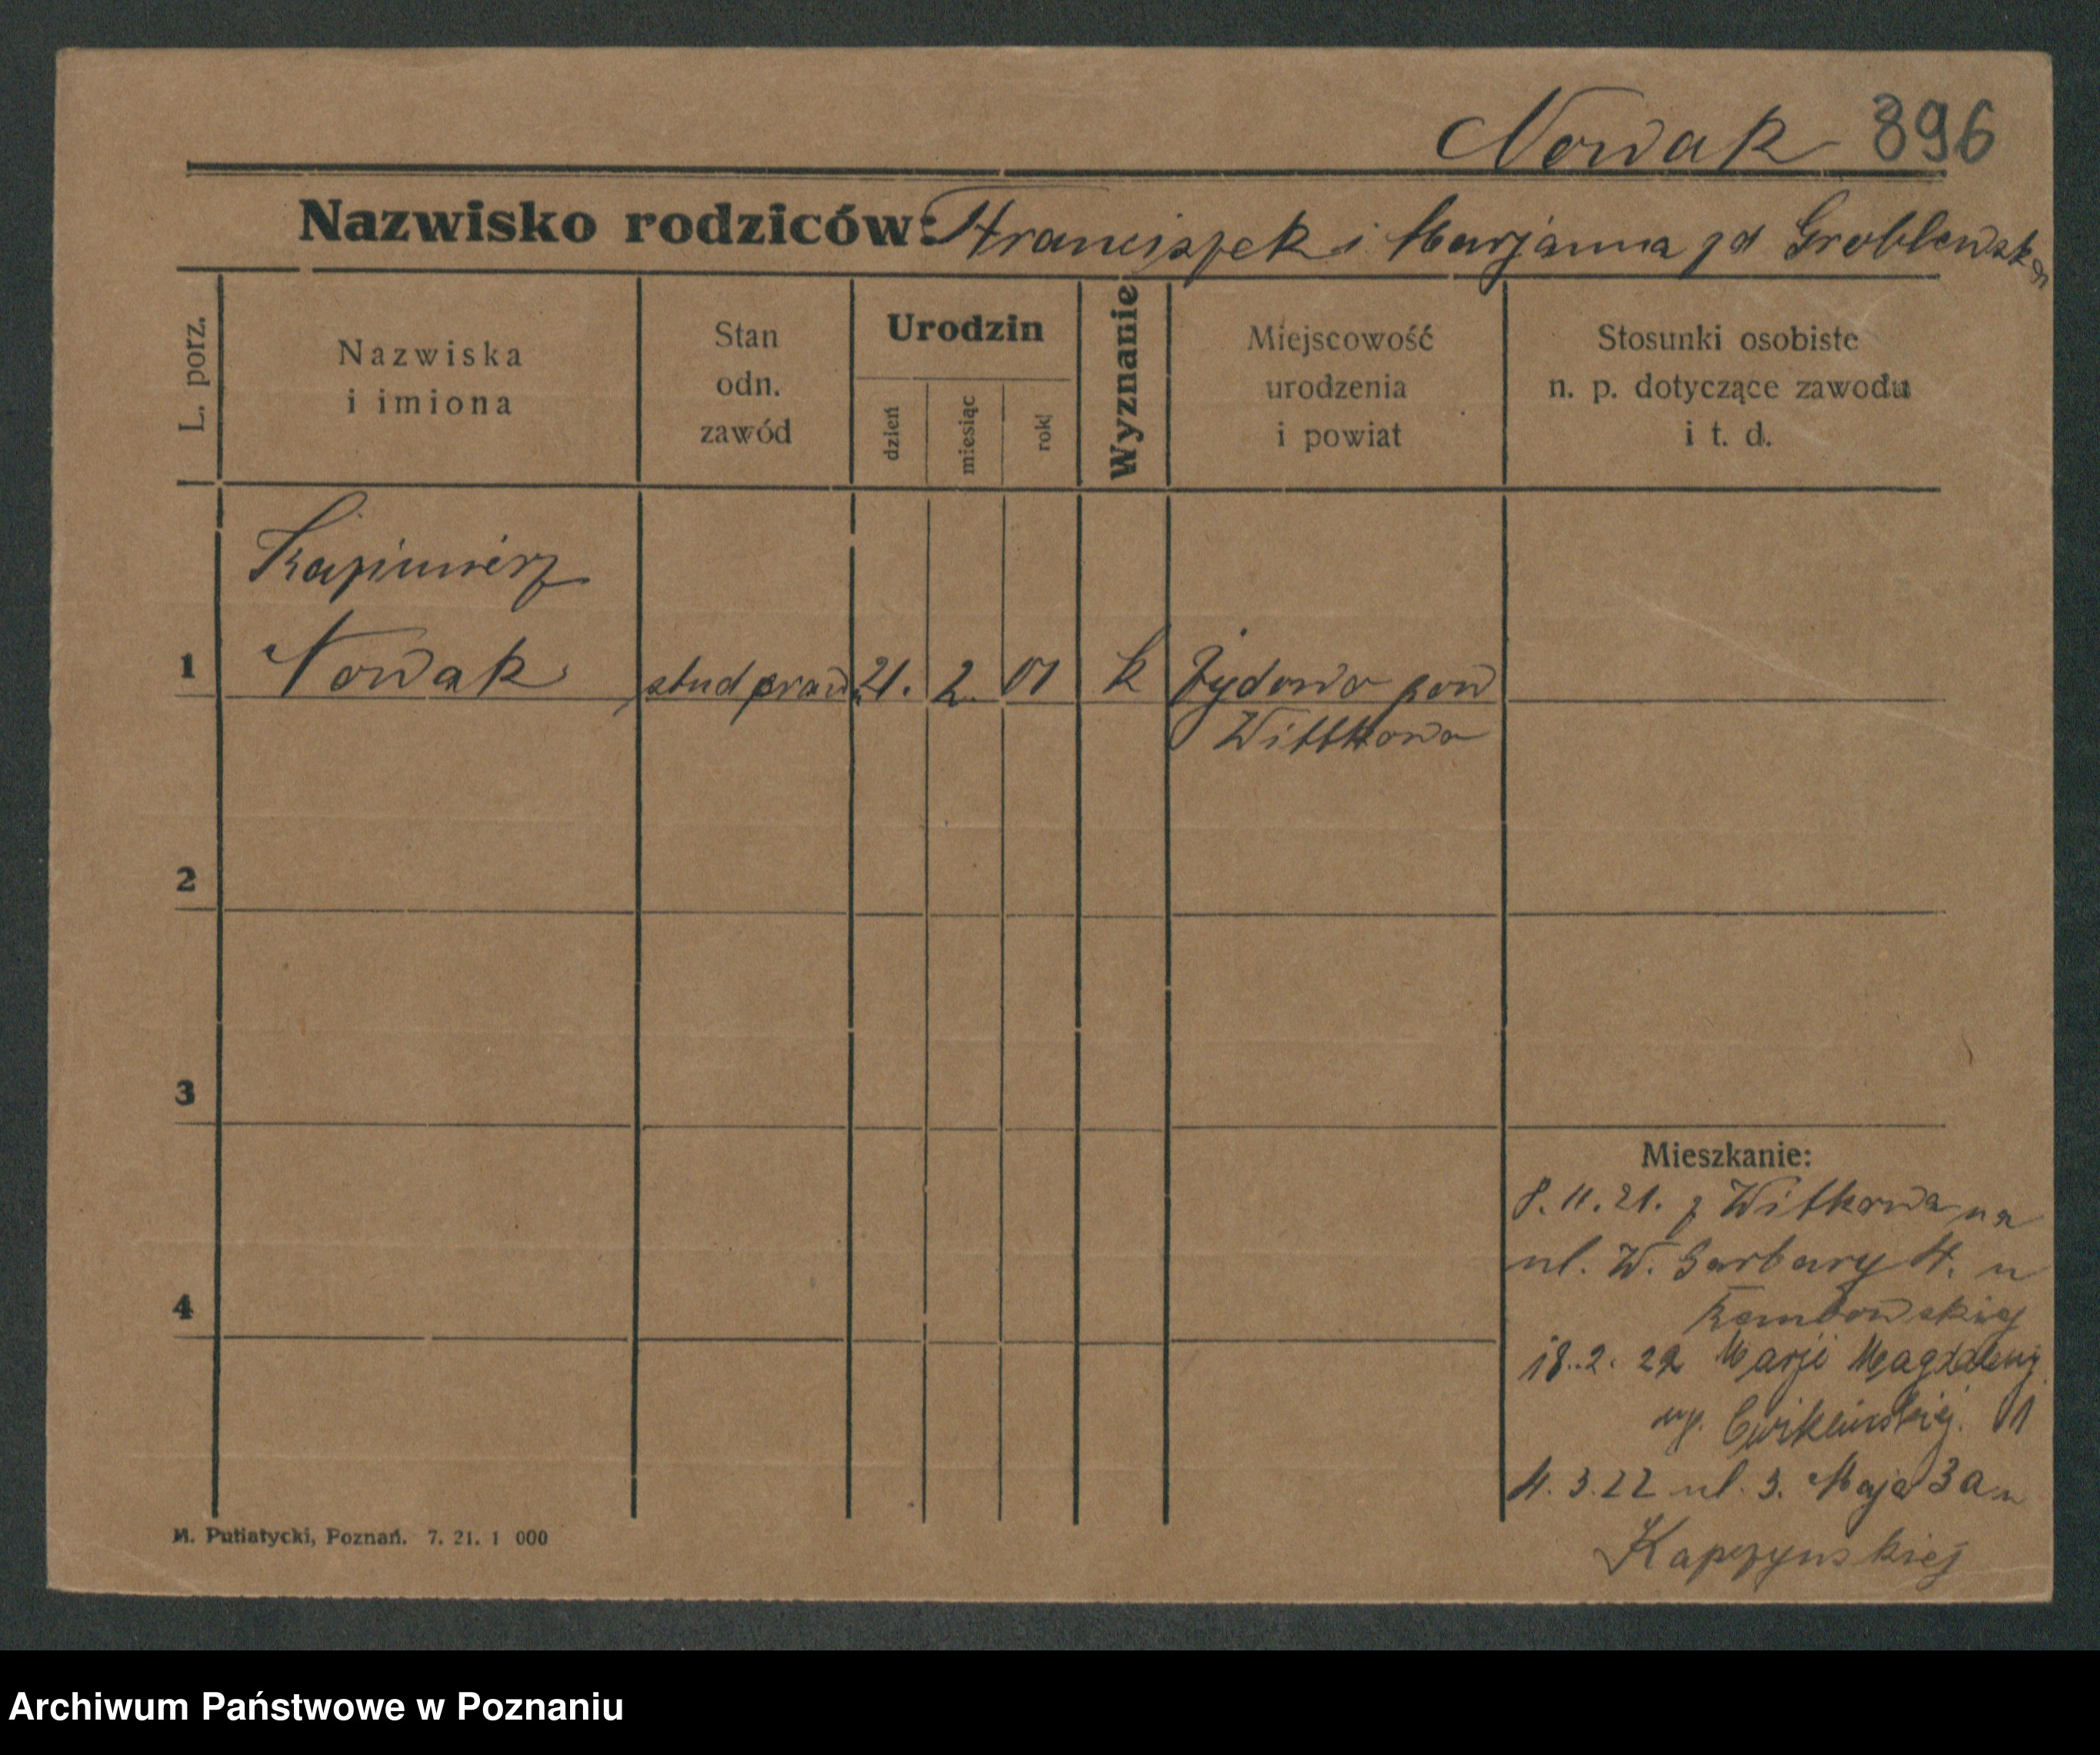 Nowak 896
Nazwisko rodziców: Franciszek i Marjanna zd Groblewska
L. porz.
Nazwiska
i imiona
Stan
odn.
zawód
Urodzin
dzień
miesiąc
rok
Wyznanie
Miejscowość
urodzenia
i powiat
Stosunki osobiste
n. p. dotyczące zawodu
i t. d.
Kazimierz
1 Nowak stud praw. 21. 2. 01 k Żydowo pow
Wittkowo
2
3
4
Mieszkanie:
8. 11. 21. z Witkowa na
ul. W. Garbary 4. u
18. 2. 22 Marji Magdaleny
4. 3. 22 ul. 3. Maja 3a u
Kapzynskiej
M. Putiatycki, Poznań. 7. 21. 1 000
Archiwum Państwowe w Poznaniu